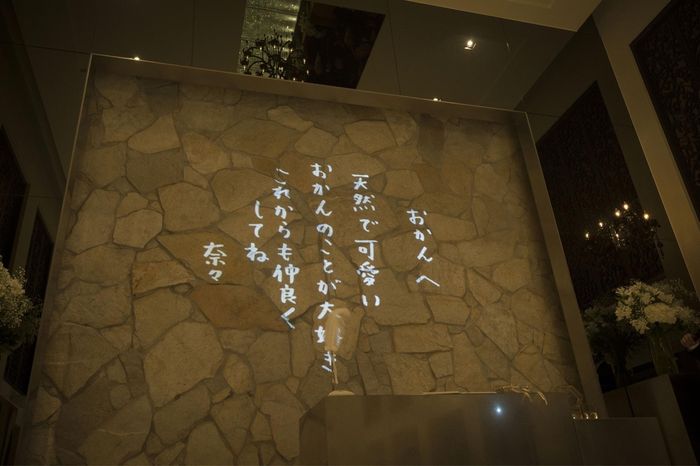 おかんへ
天然で可愛い
おかんのことが大好き
これからも仲良く
してね
奈々